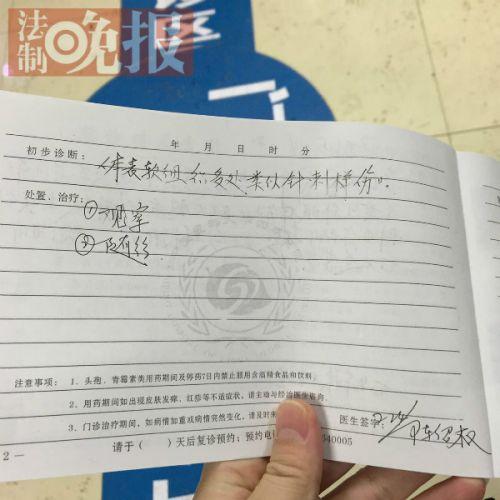 法制晚报
年 月 日 时 分
初步诊断：体表软组织多处类似针刺样伤。
处置、治疗：
①观察
②随诊
注意事项：1、头孢、青霉素类用药期间及停药7日内禁止服用含酒精食品和饮料。
2、用药期间如出现皮肤发痒、红疹等不适症状，请主动与经治医生咨询
3、门诊治疗期间，如病情加重或病情突然变化，请及时来
医生签字：
请于（ ）天后复诊预约；预约电 40005
2 —